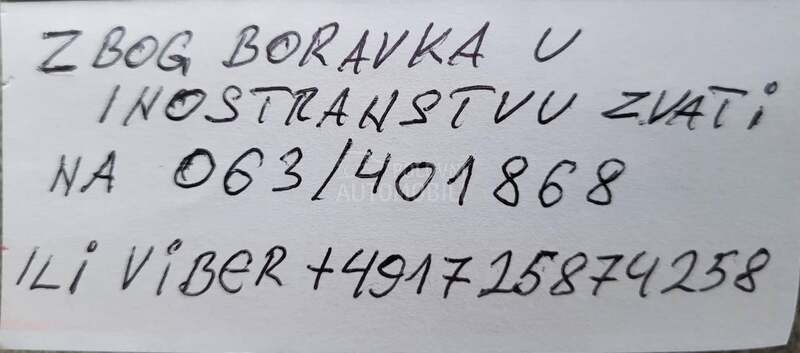 ZBOG BORAVKA U
INOSTRANSTVU ZVATI
NA 063/401868
ILI VIBER +491725874258